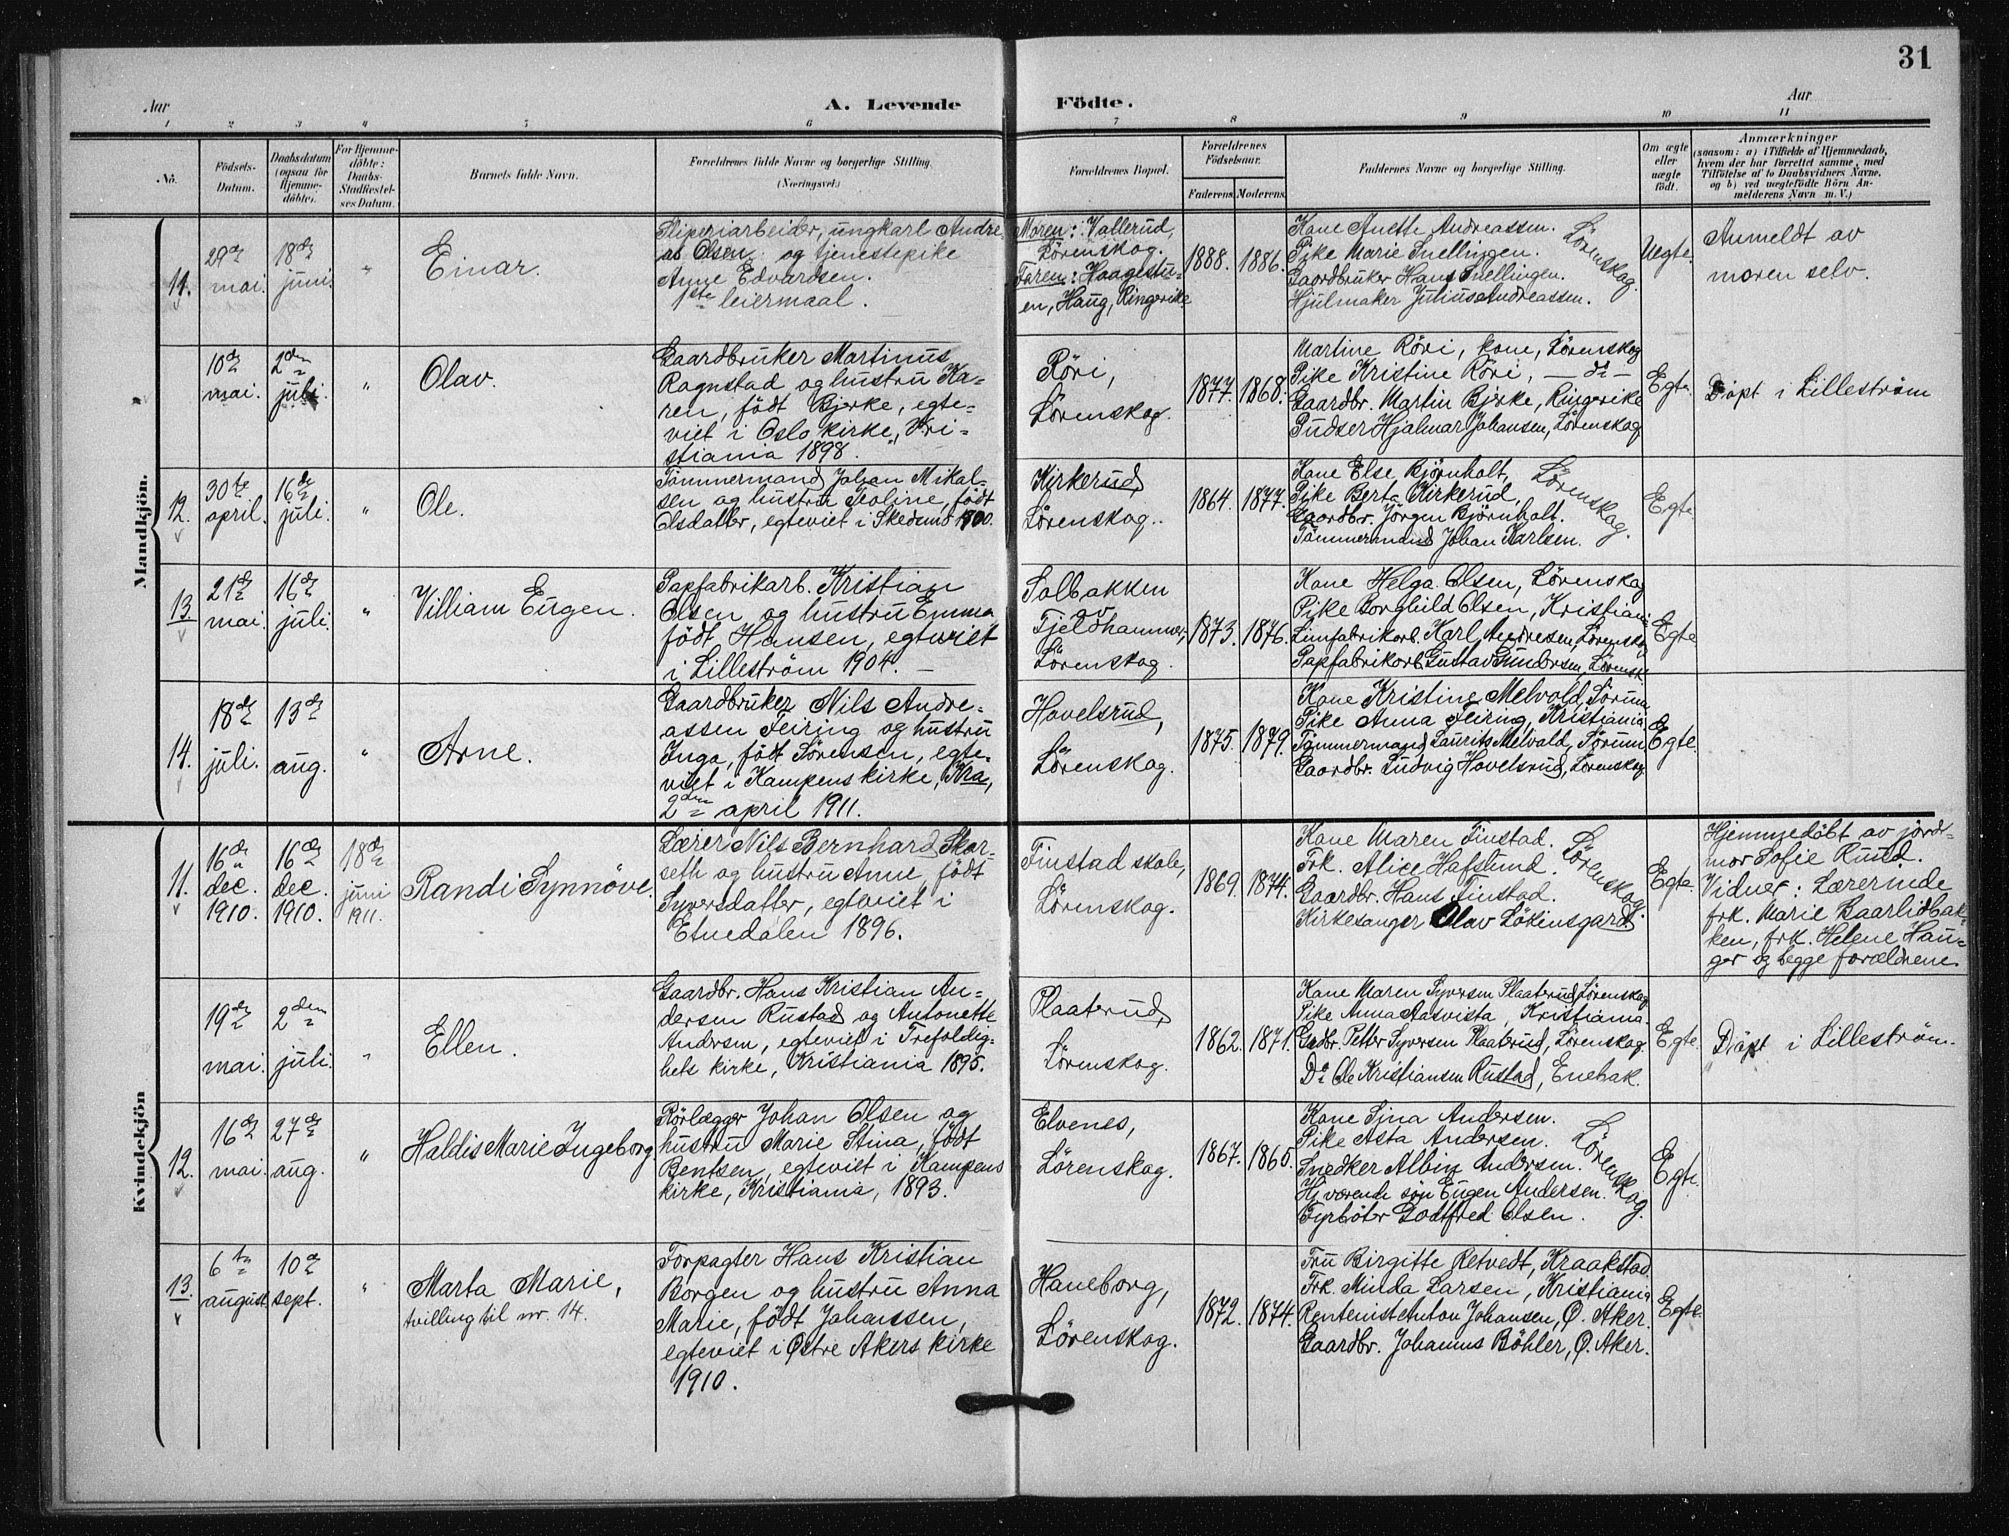 31
Aar
A. Levende
Födte.
Aar
1 2 3 4 5 6 7 8 9 10 11
No.
Födsels-
Datum.
Daabsdatum
(ogsaa for
Hjemme-
döbte).
For Hjemme-
döbte:
Daabs-
Stadfæstel-
ses Datum.
Barnets fulde Navn.
Forældrenes fulde Navne og borgerlige Stilling.
(Næringsvei.)
Forældrenes Bopæl.
Forældrenes
Födselsaar.
Faderens.
Moderens.
Faddernes Navne og borgerlige Stilling.
Om ægte
eller
uægte
födt.
Anmærkninger
(saasom: a) i Tilfælde af Hjemmedaab,
hvem der har forrettet samme, med
Tilföielse af to Daabsvidners Navne,
og b) ved uægtefödte Börn An-
melderens Navn m. V.)
Mandkjön.
11.
29de
mai.
18de
juni.
"
Einar.
Sliperiarbeider, ungkarl Andre-
as Olsen og tjenestepike
Anne Edvardsen.
1ste leiermaal.
Moren: Vallerud,
Lörenskog.
Faren: Haagestu-
en, Haug, Ringerike
1888.
1886.
Kone Anette Andreassen.
Pike Marie Snellingen.
Gaardbruker Hans Snellingen.
Hjulmaker Julius Andreassen.
Lörenskog.
Uegte.
Anmeldt av
moren selv.
10de
mai.
2den
juli.
"
Olav.
Gaardbruker Martinus
Rognstad og hustru Ka-
ren, födt Bjerke, egte-
viet i Oslo kirke, Kri-
stiania 1898.
Röri,
Lörenskog.
1877.
1868.
Martine Röri, kone, Lörenskog
Pike Kristine Röri, — do —
Gaardbr. Martin Bjerke, Ringerike
Pudser Hjalmar Johansen, Lörenskog
Egte.
Döpt i Lilleström
12.
30te
april.
16de
juli.
"
Ole.
Tömmermand Johan Mikal-
sen og hustru Teoline, födt
Olsdatter, egteviet i Skedsmo 1900.
Kirkerud,
Lörenskog.
1864.
1877.
Kone Else Björnholt,
Pike Berta Kirkerud,
Gaardbr. Jörgen Björnholt.
Tömmermand Johan Karlsen.
Lörenskog.
Egte
13.
21de
mai.
16de
juli.
"
Villiam Eugen.
Papfabrikarb. Kristian
Olsen og hustru Emma
födt Hansen, egteviet
i Lilleström 1904.
Solbakken
av
Fjeldhammer,
Lörenskog.
1873.
1876.
Kone Helga Olsen, Lörenskog
Pike Borghild Olsen, Kristiania
Limfabrikarb. Karl Andresen, Lörenskog
Papfabrikarb. Gustav Gundersen, Lörensk.
Egte
14.
18de
juli.
13de
aug.
"
Arne.
Gaardbruker Nils Andre-
assen Feiring og hustru
Inga, födt Sörensen, egte-
viet i Kampens kirke, Kra,
2den april 1911.
Hovelsrud,
Lörenskog.
1875.
1879.
Kone Kristine Melvold, Sörum,
Pike Anna Feiring, Kristiania
Tömmermand Laurits Melvald, Sörum
Gaardbr. Ludvig Hovelsrud, Lörenskog
Egte.
Kvindekjön
11.
16de
dec.
1910.
16de
dec.
1910.
18de
juni
1911.
Randi Synnöve.
Lærer Nils Bernhard Skar-
seth og hustru Anne, födt
Syversdatter, egteviet i
Etnedalen 1896.
Finstad skole,
Lörenskog.
1869.
1874.
Kone Maren Finstad.
Frk. Alice Hafslund.
Gaardbr. Hans Finstad.
Kirkesanger Olav Lökensgard.
Lörenskog.
Egte.
Hjemmedöbt av jord-
mor Sofie Ruud.
Vidner: Lærerinde
frk. Marie Baarlidbak-
ken, frk. Helene Hau-
ger og begge forældrene.
19de
mai.
2den
juli.
"
Ellen.
Gaardbr. Hans Kristian An-
dersen Rustad og Antonette
Andersen, egteviet i Trefoldig-
hets kirke, Kristiania 1895.
Plaaterud,
Lörenskog.
1862.
1871.
Kone Maren Syversen Plaaterud, Lörenskog
Pike Anna Aasvista, Kristiania.
Gdbr. Petter Syversen Plaaterud, Lörenskog
Do Ole Kristiansen Rustad, Enebak.
Egte.
Döpt i Lilleström.
12.
16de
mai.
27de
aug.
"
Haldis Marie Ingeborg
Rörlægger Johan Olsen og
hustru Marie Stina, födt
Bentsen, egteviet i Kampens
kirke, Kristiania, 1893.
Elvenes,
Lörenskog.
1867.
1865.
Kone Sina Andersen.
Pike Asta Andersen.
Snedker Albin Andersen.
Hj.værende sön Eugen Andersen.
Fyrböter Godtfred Olsen.
Lörenskog.
Egte.
13.
6te
august
10de
sept.
"
Marta Marie,
tvilling til nr. 14.
Forpagter Hans Kristian
Borgen og hustru Anna
Marie, födt Johanssen,
egteviet i Østre Akers kirke
1910.
Haneborg,
Lörenskog.
1872.
1874.
Fru Birgitte Retvedt, Kraakstad
Frk. Minda Larsen, Kristiania
Rentenist Anton Johansen, Ø. Aker.
Gaardbr. Johannes Böhler, Ø. Aker.
Egte.